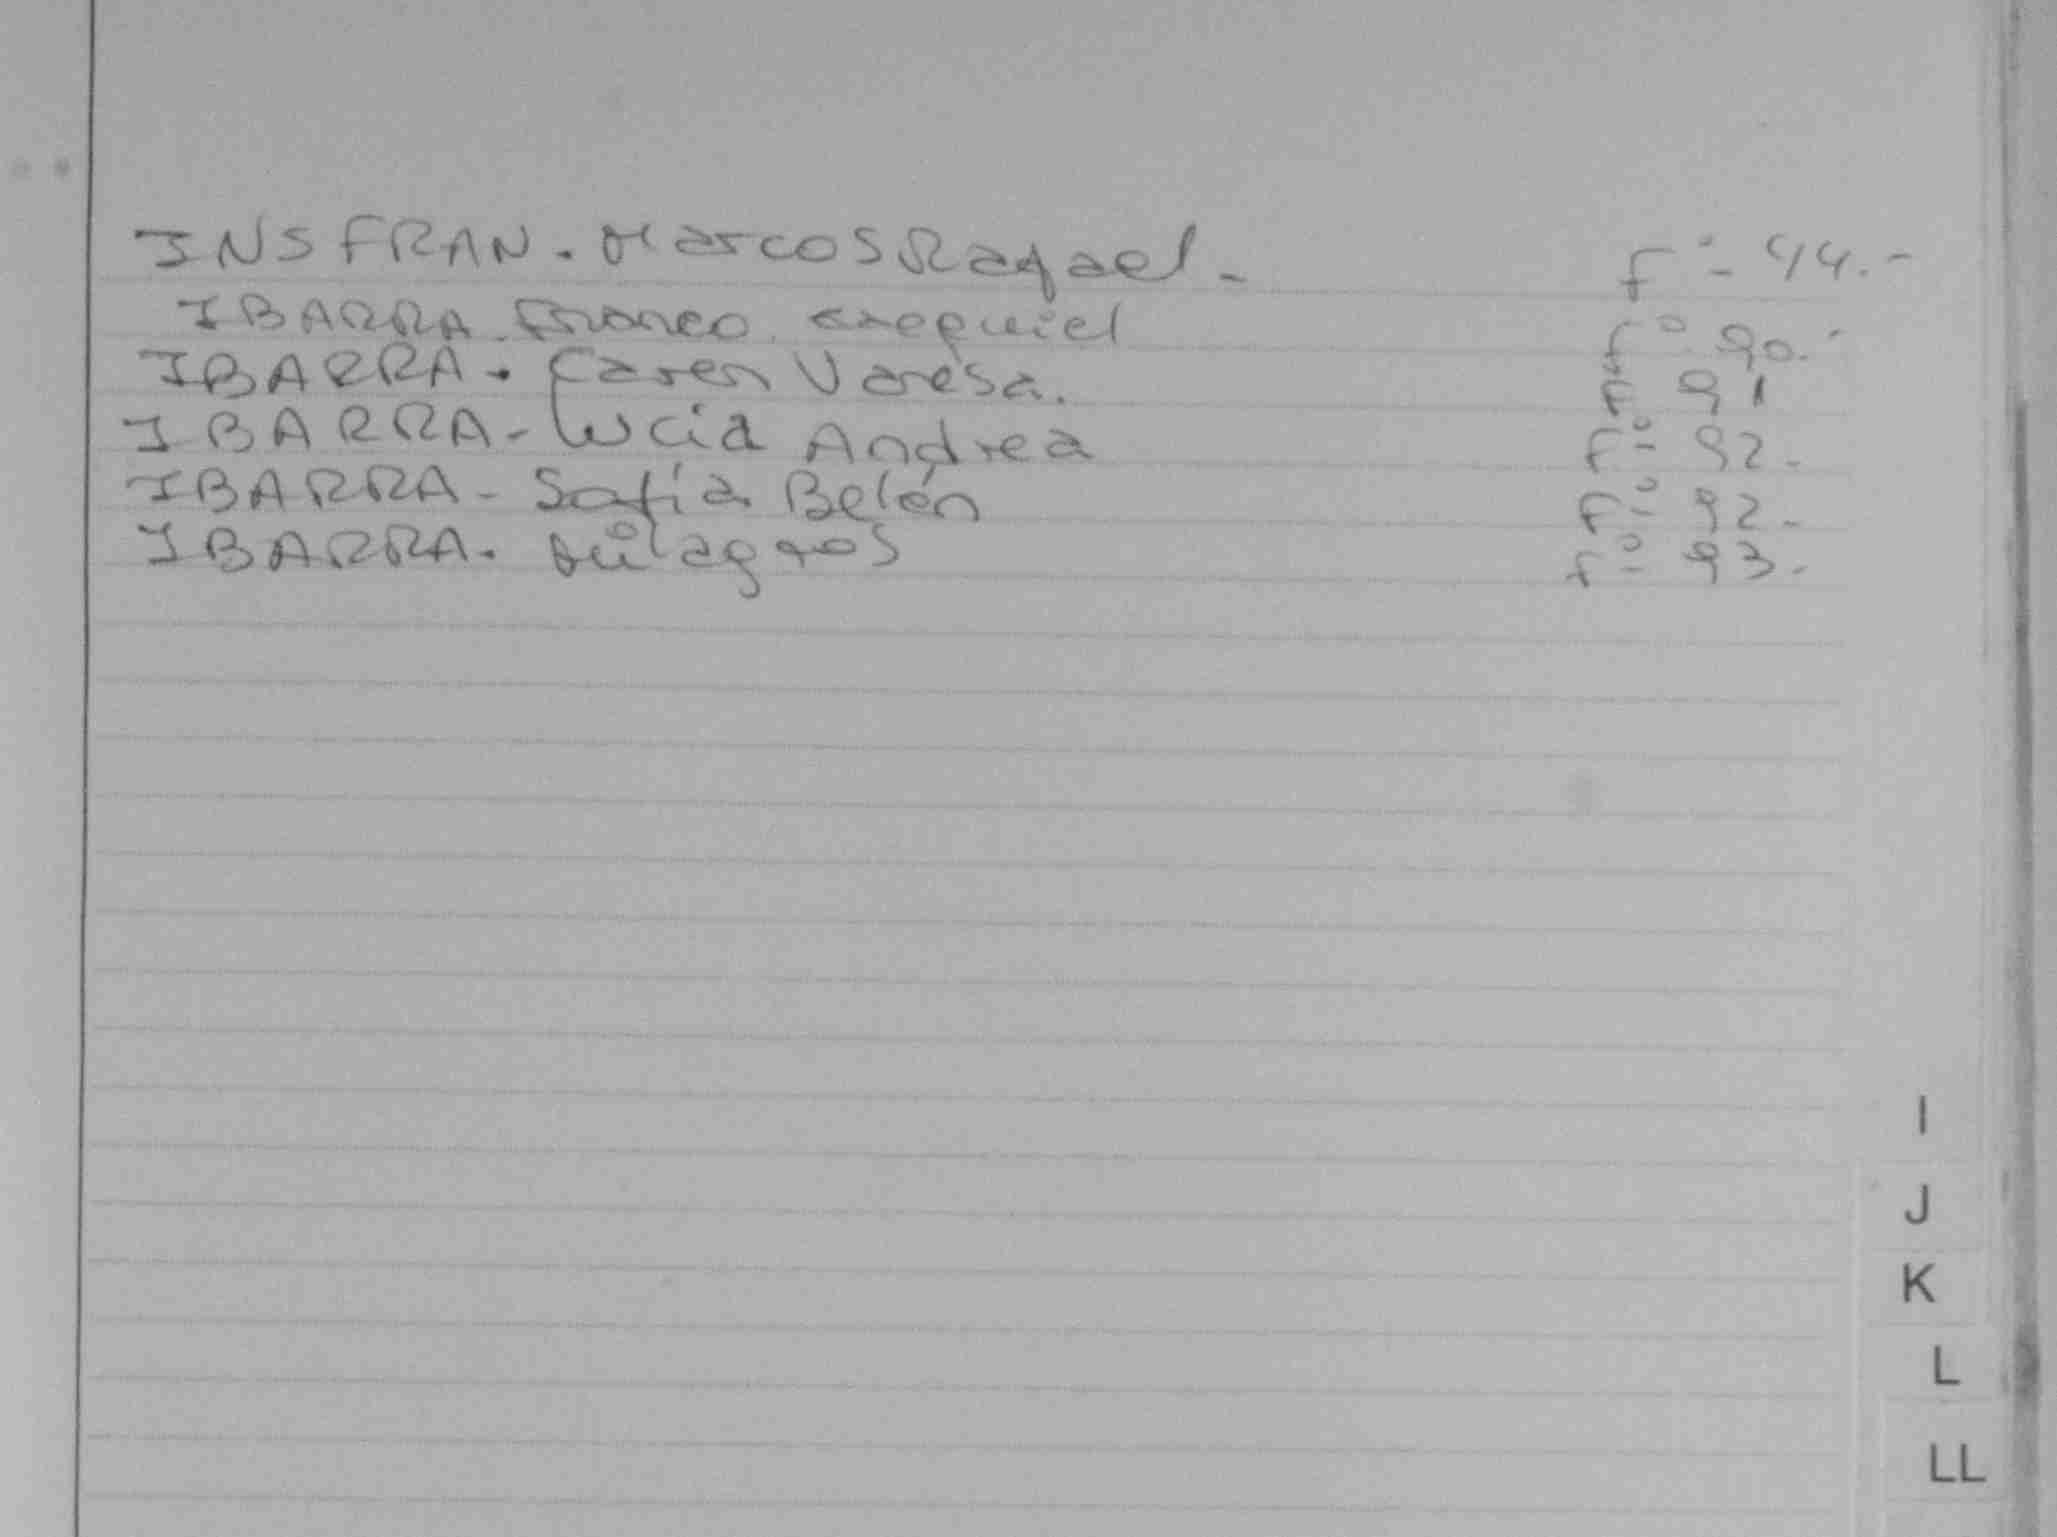 INSFRAN. Marcos Rafael.- fº 44.-
IBARRA. Franco. Exequiel fº 90.-
IBARRA. Caren Vanesa. fº 91
IBARRA- Lucía Andrea fº 92.-
IBARRA- Sofía Belén fº 92.-
IBARRA. Milagros fº 93.-
I
J
K
L
LL